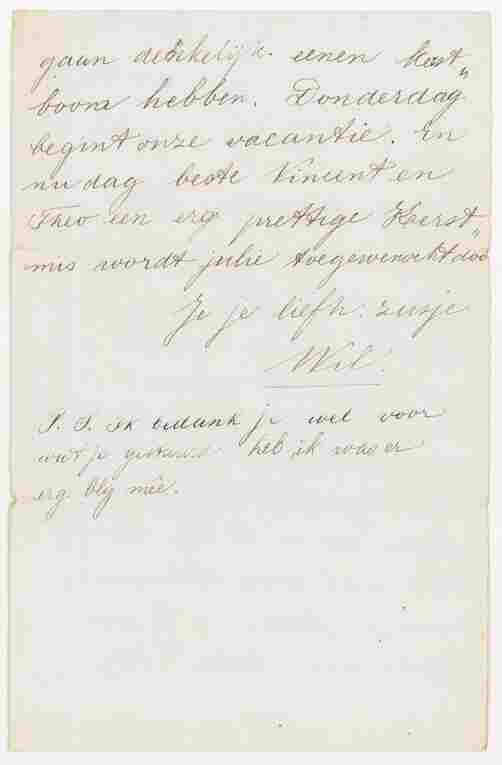 gaan denkelijk eenen kerst"
boom hebben. Donderdag
begint onze vacantie. En
nu dag beste Vincent en
Theo een erg prettige Kerst"
mis wordt julie toegewenscht door
Je je liefh: zusje
Wil.
P. S. Ik bedank je wel voor
wat je gestuurd heb ik was er
erg blij mêe.